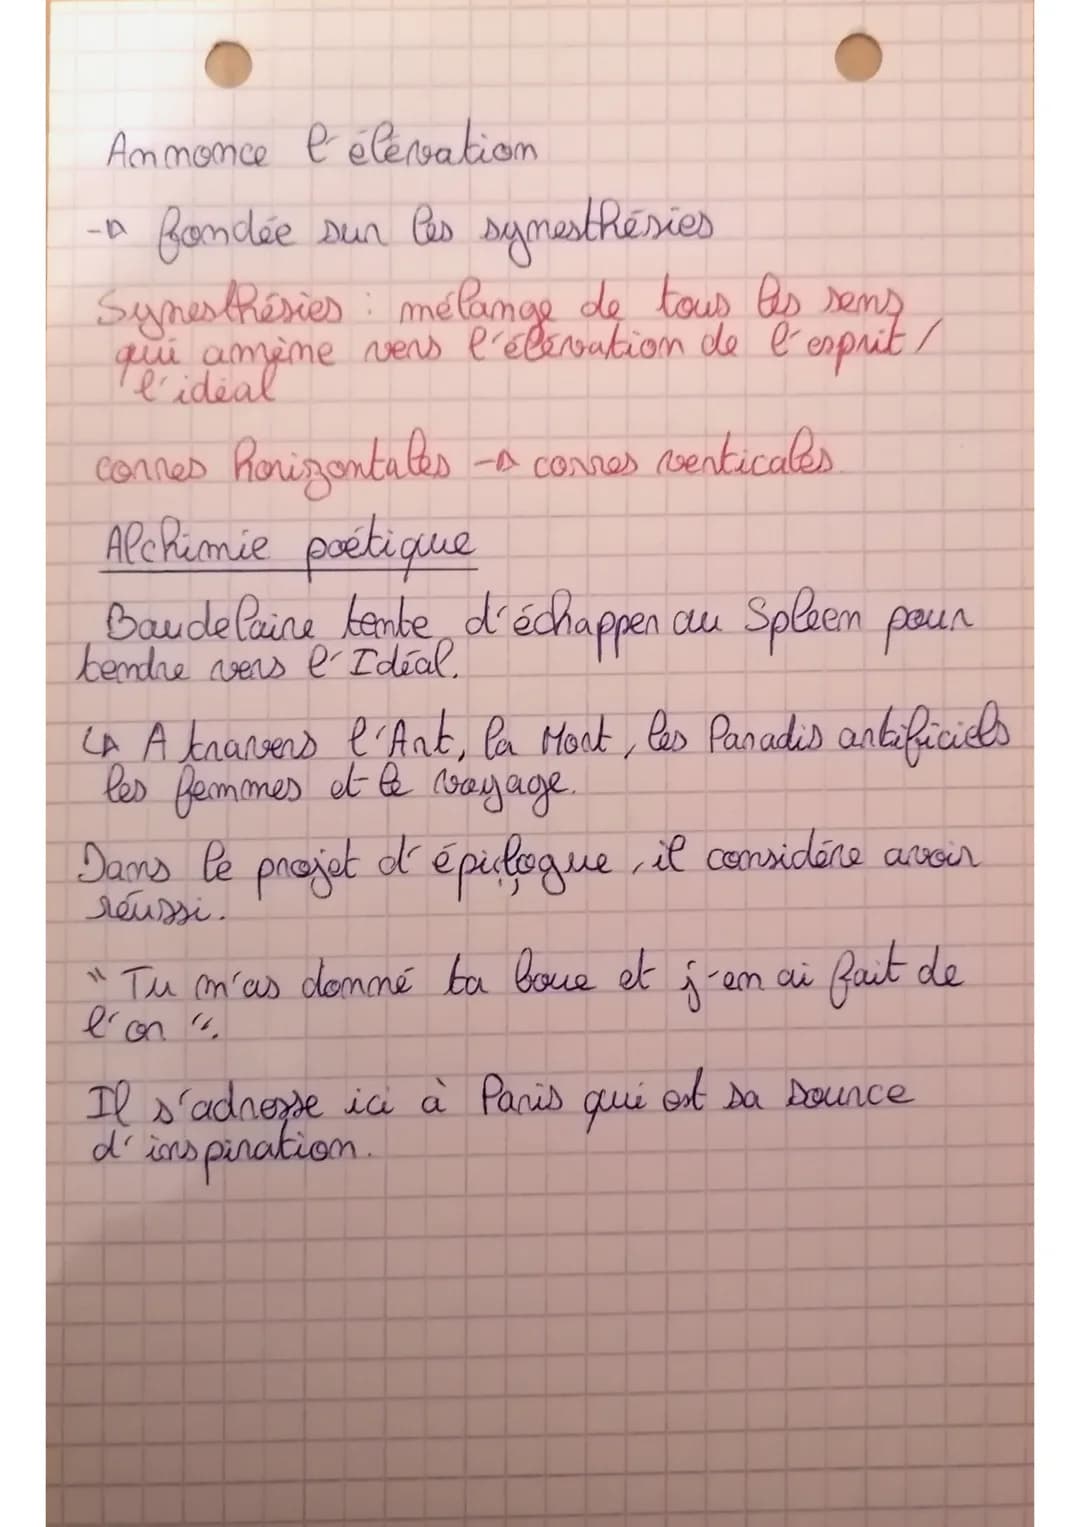 Annonce l'élévation
→ fondée sur les synesthésies
Synesthésies : mélange de tous les sens
qui amème vers l'élévation de l'esprit /
l'idéal
corres horizontales → corres verticales
Alchimie poétique
Baudelaire tente d'échapper au Spleen pour
tendre vers l'Idéal.
↳ A travers l'Art, la Mort, les Paradis artificiels
les femmes et le voyage.
Dans le projet d'épilogue, il considère avoir
réussi.
"Tu m'as donné ta boue et j'en ai fait de
l'or".
Il s'adresse ici à Paris qui est sa source
d'inspiration.